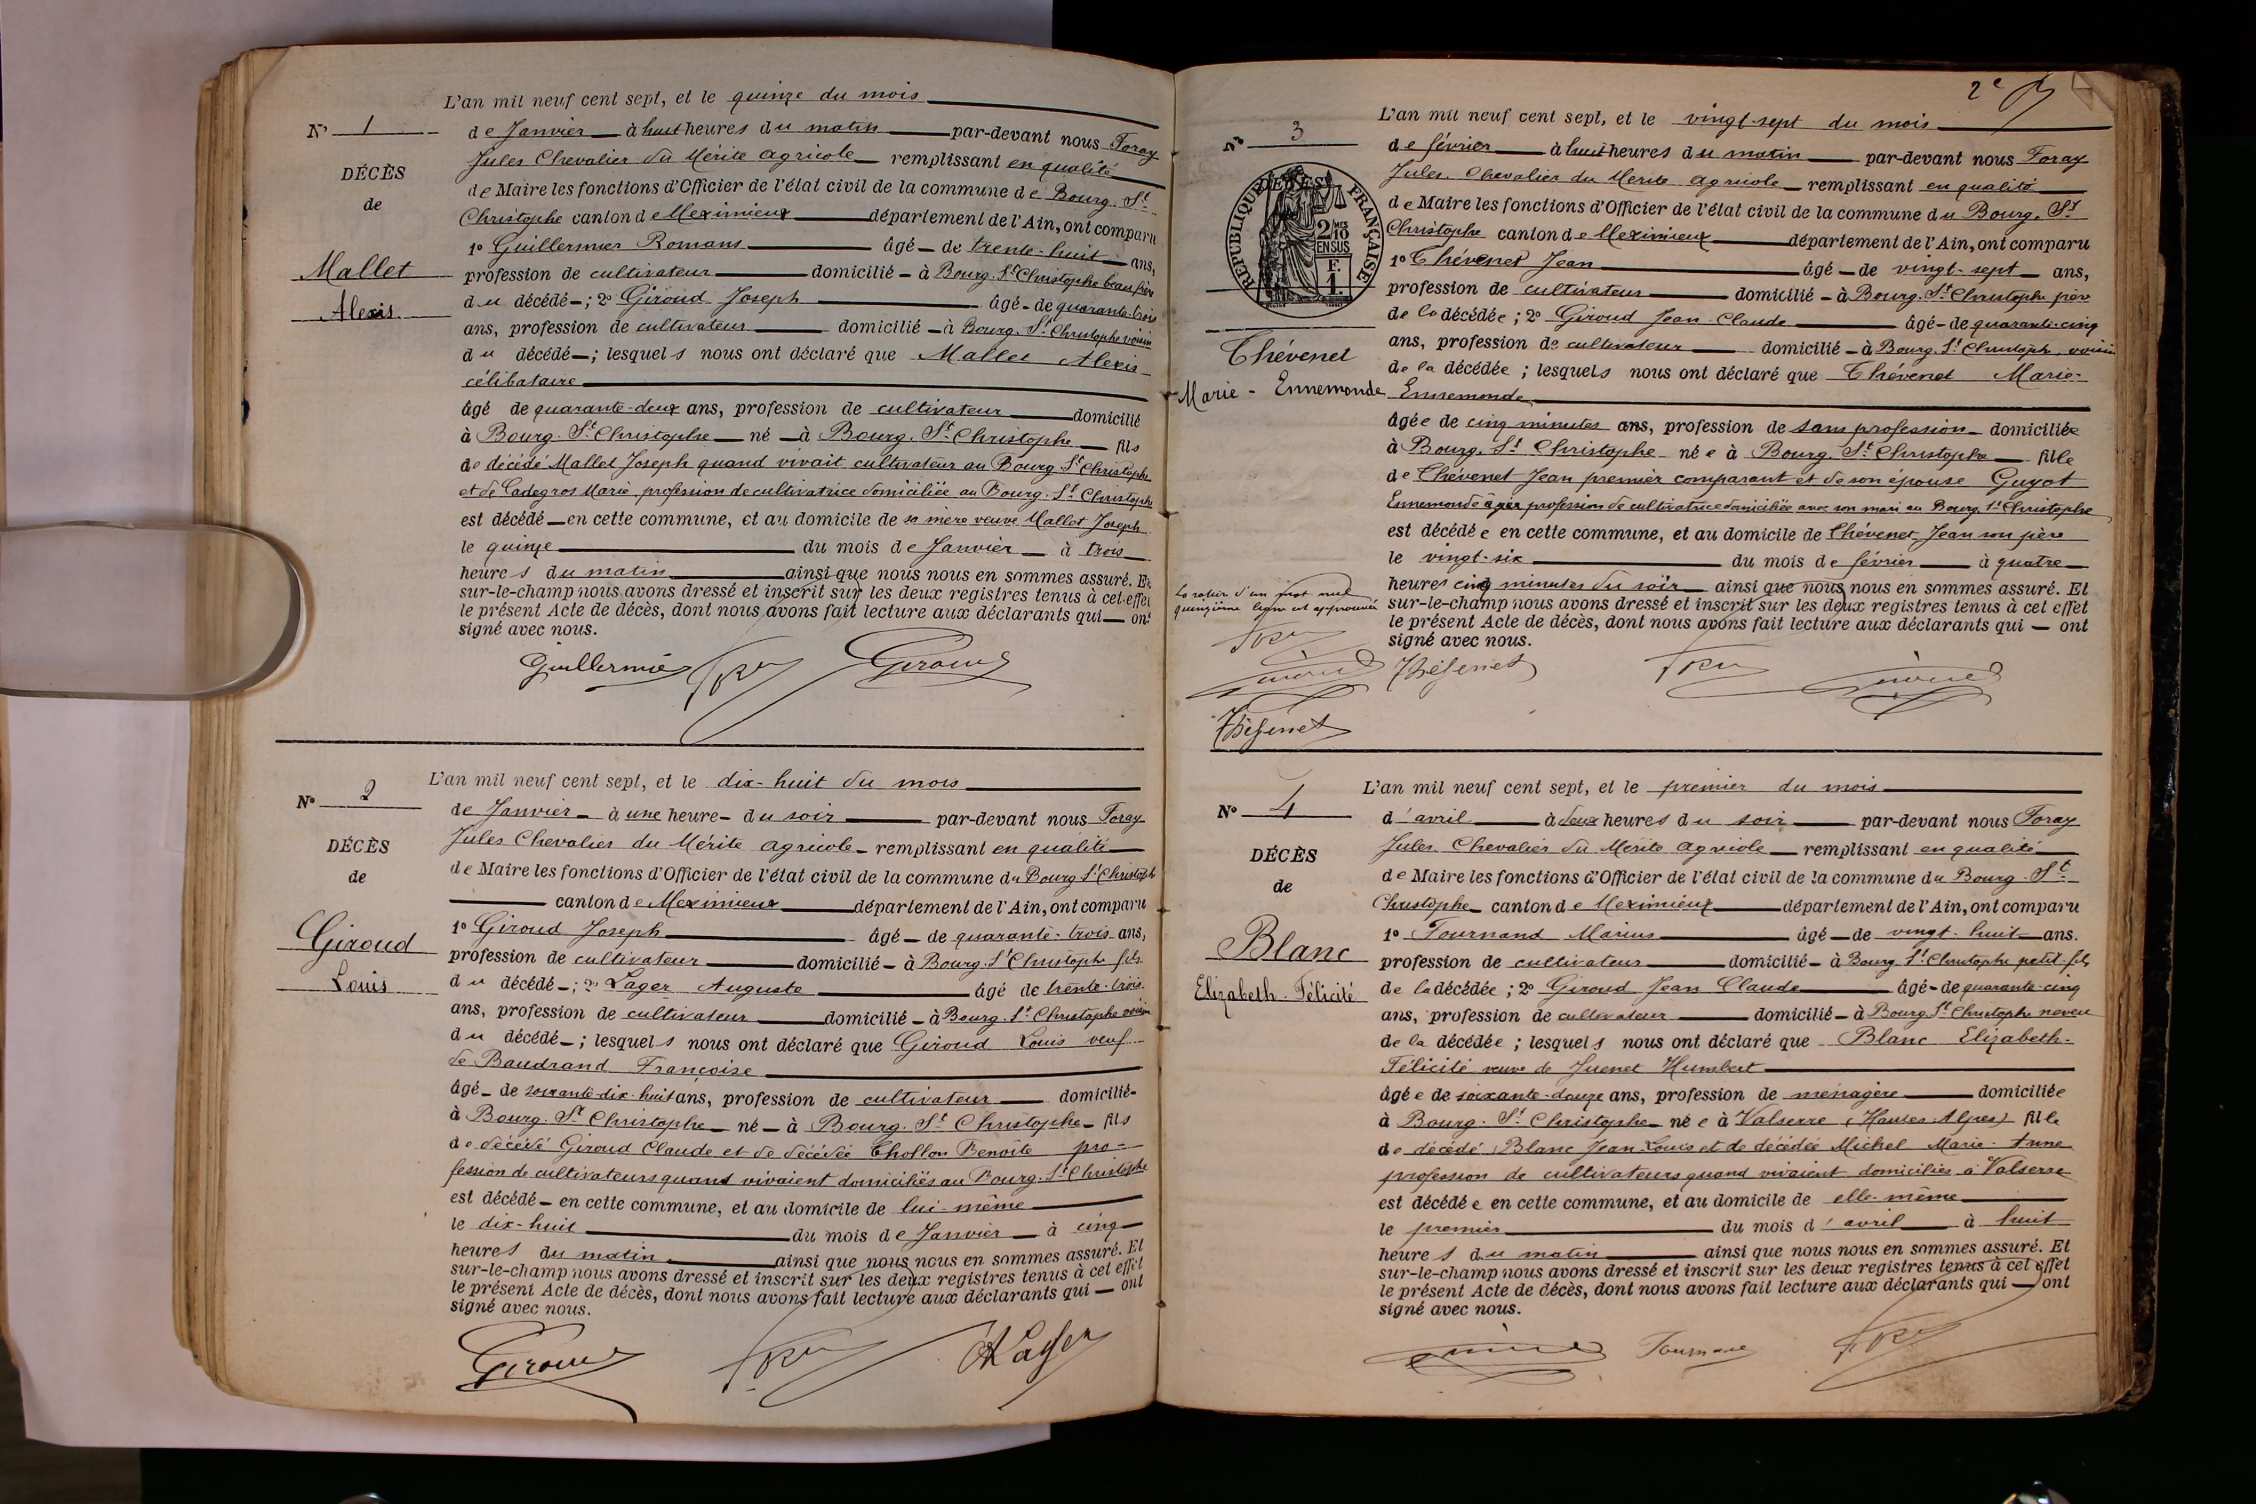 L'an mil neuf cent sept, et le quinze du mois
N° 1
de Janvier à huit heures du matin par-devant nous Foray
Jules Chevalier du Mérite agricole remplissant en qualité
DÉCÈS
de Maire les fonctions d'Officier de l'état civil de la commune de Bourg. St
de
Christophe canton de Meximieux département de l'Ain, ont comparu
1° Guillermier Romans âgé de trente-huit ans,
Mallet
profession de cultivateur domicilié à Bourg. St Christophe beau frère
Alexis
du décédé ; 2° Giroud Joseph âgé de quarante-trois
ans, profession de cultivateur domicilié à Bourg. St Christophe voisin
du décédé ; lesquels nous ont déclaré que Mallet Alexis
célibataire
âgé de quarante-deux ans, profession de cultivateur domicilié
à Bourg. St Christophe né à Bourg. St Christophe fils
de décédé Mallet Joseph quand vivait cultivateur au Bourg St Christophe
et de Cadegros Marie profession de cultivatrice domiciliée au Bourg. St Christophe
est décédé en cette commune, et au domicile de sa mère veuve Mallet Joseph
le quinze du mois de Janvier à trois
heures du matin ainsi que nous nous en sommes assuré. Et
sur-le-champ nous avons dressé et inscrit sur les deux registres tenus à cet effet
le présent Acte de décès, dont nous avons fait lecture aux déclarants qui ont
signé avec nous.
Guillermier Giroud
L'an mil neuf cent sept, et le dix-huit du mois
N° 2
de Janvier à une heure du soir par-devant nous Foray
Jules Chevalier du Mérite agricole remplissant en qualité
DÉCÈS
de Maire les fonctions d'Officier de l'état civil de la commune du Bourg St Christophe
de
canton de Meximieux département de l'Ain, ont comparu
1° Giroud Joseph âgé de quarante-trois ans,
Giroud
profession de cultivateur domicilié à Bourg. St Christophe fils
Louis
du décédé ; 2° Lager Auguste âgé de trente-trois
ans, profession de cultivateur domicilié à Bourg. St Christophe voisin
du décédé ; lesquels nous ont déclaré que Giroud Louis veuf
de Baudrand Françoise
âgé de soixante-dix-huit ans, profession de cultivateur domicilié
à Bourg. St Christophe né à Bourg. St Christophe fils
de décédé Giroud Claude et de décédée Chollon Benoîte pro-
fession de cultivateurs quand vivaient domiciliés au Bourg. St Christophe
est décédé en cette commune, et au domicile de lui-même
le dix-huit du mois de Janvier à cinq
heures du matin ainsi que nous nous en sommes assuré. Et
sur-le-champ nous avons dressé et inscrit sur les deux registres tenus à cet effet
le présent Acte de décès, dont nous avons fait lecture aux déclarants qui ont
signé avec nous.
Giroud A Lager
2e
L'an mil neuf cent sept, et le vingt-sept du mois
N° 3
de février à huit heures du matin par-devant nous Foray
Jules Chevalier du Mérite agricole remplissant en qualité
de Maire les fonctions d'Officier de l'état civil de la commune du Bourg. St
RÉPUBLIQUE FRANÇAISE
2/10 EN SUS
F. 1.
Christophe canton de Meximieux département de l'Ain, ont comparu
1° Thévenet Jean âgé de vingt-sept ans,
profession de cultivateur domicilié à Bourg. St Christophe père
de la décédée ; 2° Giroud Jean Claude âgé de quarante-cinq
Thévenet
ans, profession de cultivateur domicilié à Bourg. St Christophe voisin
de la décédée ; lesquels nous ont déclaré que Thévenet Marie-
Marie - Ennemonde
Ennemonde
âgée de cinq minutes ans, profession de sans profession domiciliée
à Bourg. St Christophe née à Bourg. St Christophe fille
de Thévenet Jean premier comparant et de son épouse Guyot
Ennemonde profession de cultivatrice domiciliée avec son mari au Bourg. St Christophe
est décédée en cette commune, et au domicile de Thévenet Jean son père
le vingt-six du mois de février à quatre
heures cinq minutes du soir ainsi que nous nous en sommes assuré. Et
La rature d'un mot nul
quinzième ligne est approuvée
sur-le-champ nous avons dressé et inscrit sur les deux registres tenus à cet effet
le présent Acte de décès, dont nous avons fait lecture aux déclarants qui ont
signé avec nous.
Giroud Thévenet Giroud
Thévenet
L'an mil neuf cent sept, et le premier du mois
N° 4
d'avril à deux heures du soir par-devant nous Foray
Jules Chevalier du Mérite agricole remplissant en qualité
DÉCÈS
de Maire les fonctions d'Officier de l'état civil de la commune du Bourg. St
de
Christophe canton de Meximieux département de l'Ain, ont comparu
1° Tournand Marius âgé de vingt-huit ans.
Blanc
profession de cultivateur domicilié à Bourg. St Christophe petit-fils
Elizabeth. Félicité
de la décédée ; 2° Giroud Jean Claude âgé de quarante-cinq
ans, profession de cultivateur domicilié à Bourg St Christophe neveu
de la décédée ; lesquels nous ont déclaré que Blanc Elizabeth-
Félicité veuve de Juenet Humbert
âgée de soixante-douze ans, profession de ménagère domiciliée
à Bourg. St Christophe née à Valserre (Hautes Alpes) fille
de décédé Blanc Jean Louis et de décédée Michel Marie-Anne
profession de cultivateurs quand vivaient domiciliés à Valserre
est décédée en cette commune, et au domicile de elle-même
le premier du mois d'avril à huit
heures du matin ainsi que nous nous en sommes assuré. Et
sur-le-champ nous avons dressé et inscrit sur les deux registres tenus à cet effet
le présent Acte de décès, dont nous avons fait lecture aux déclarants qui ont
signé avec nous.
Tournand